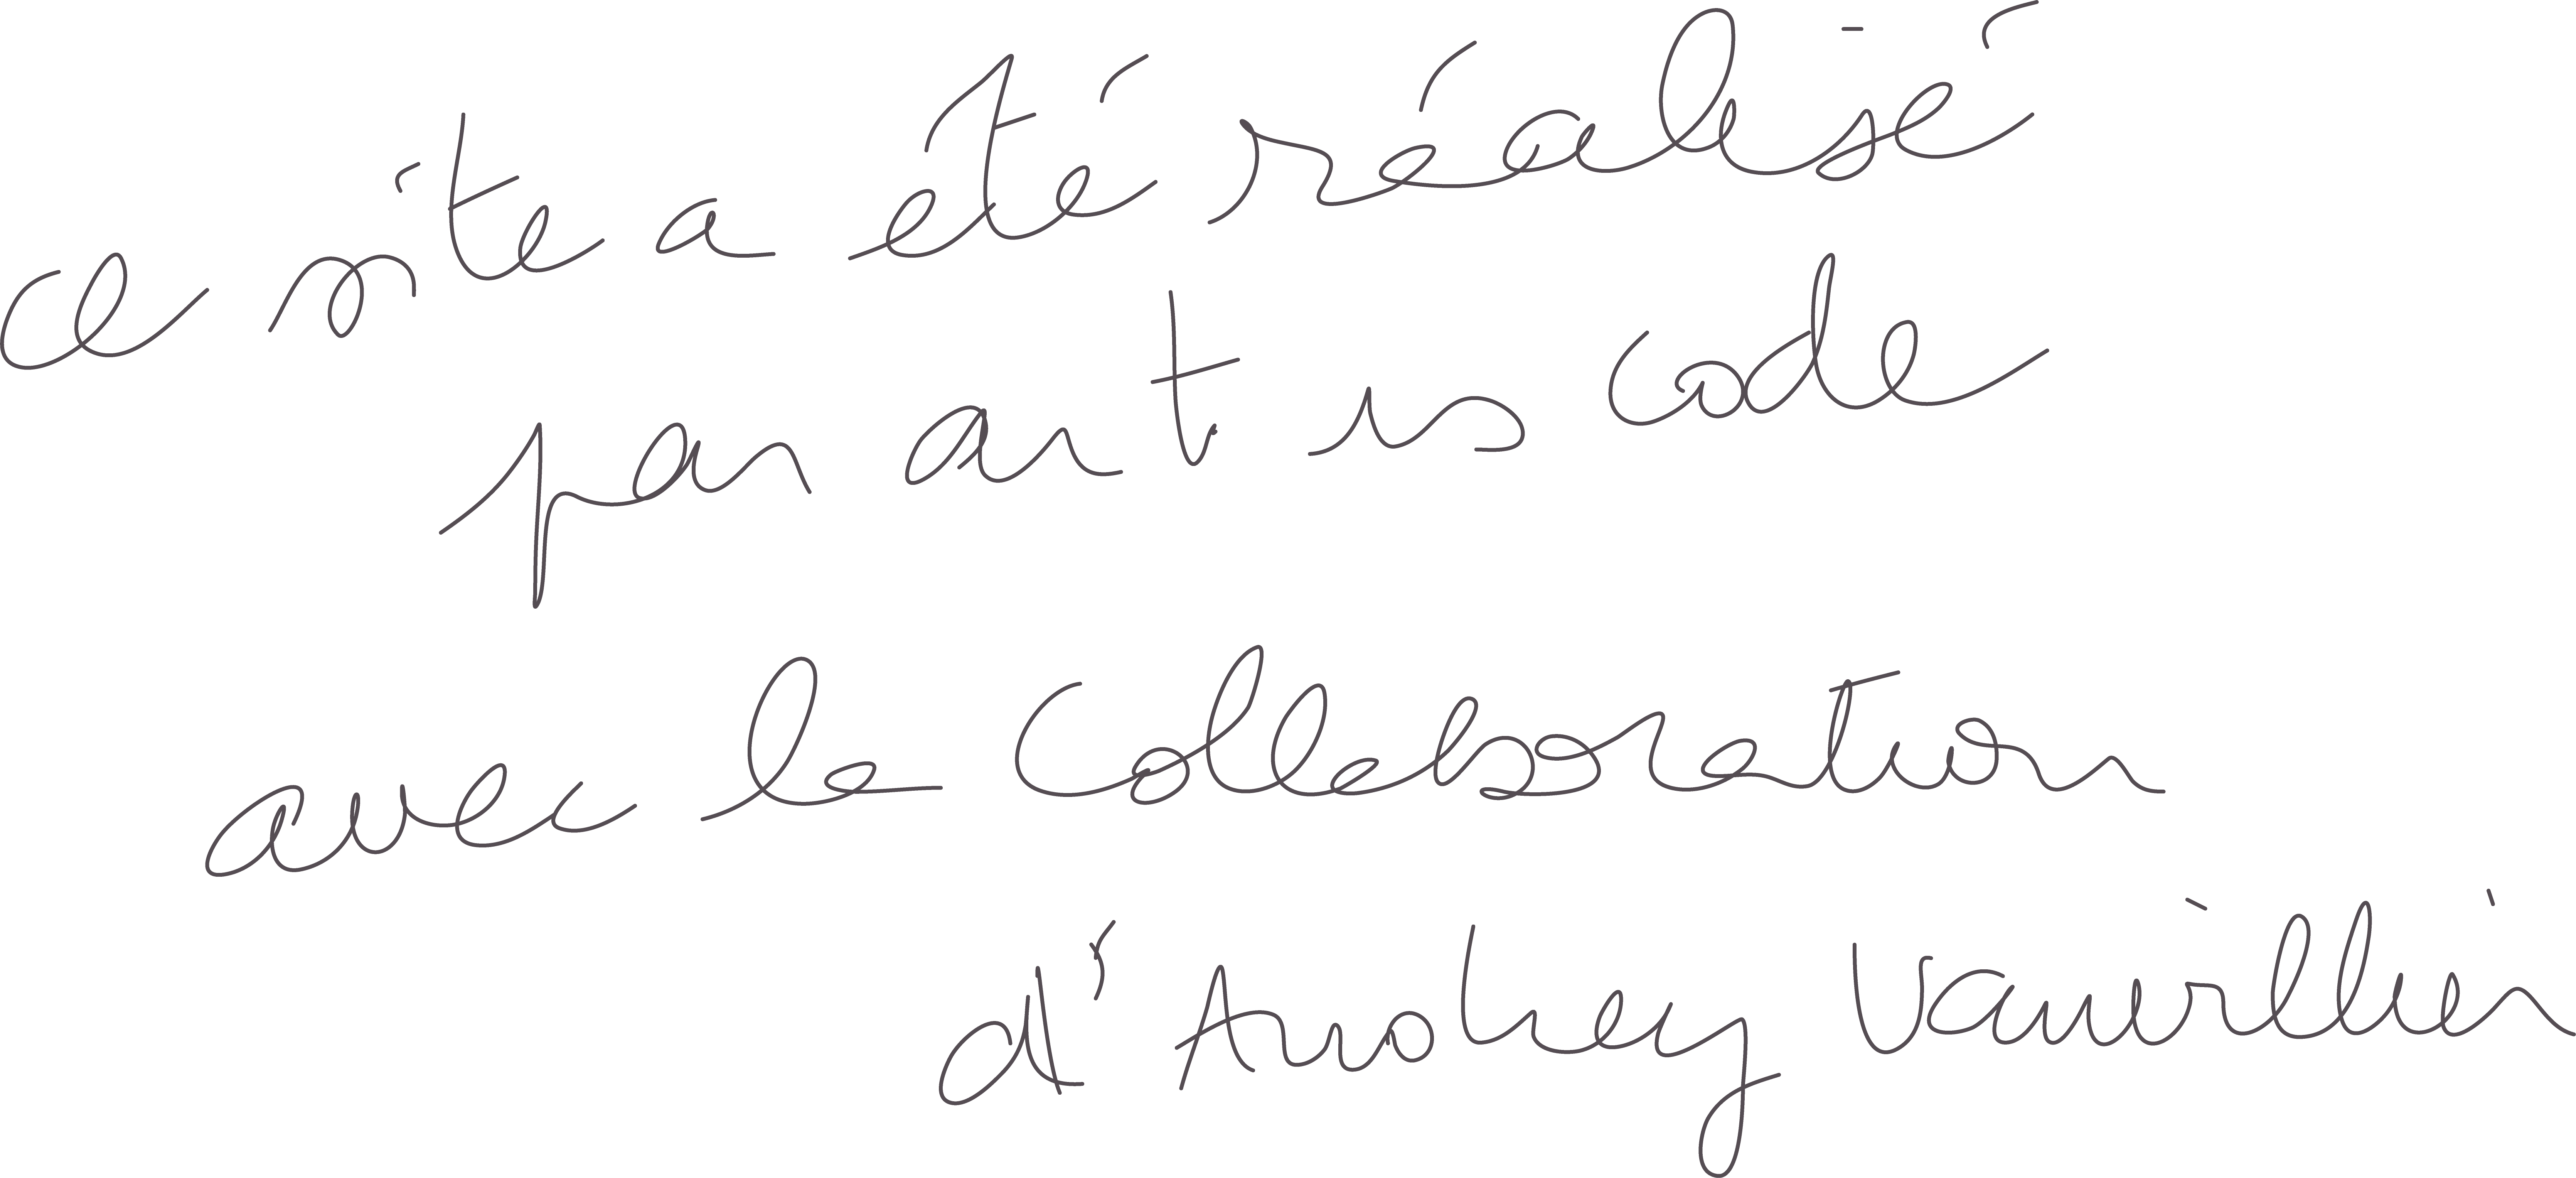 ce site a été réalisé
par art is code
avec la collaboration
d'Audrey